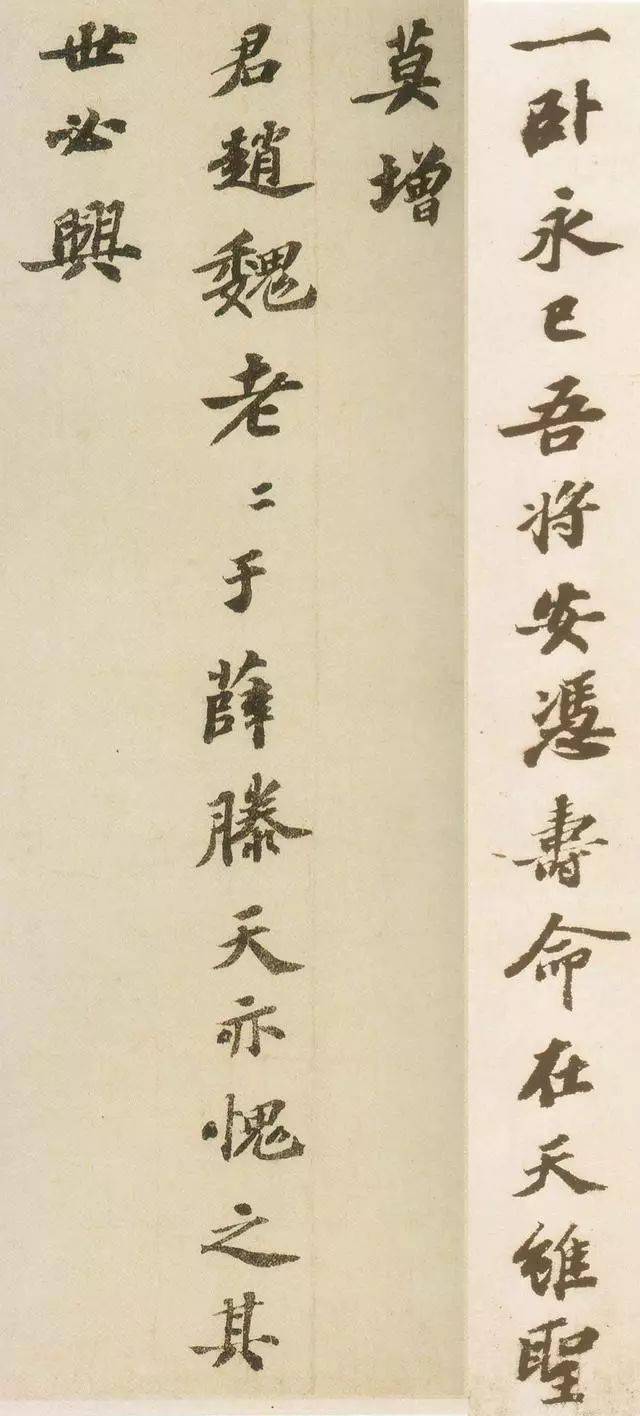 一卧永已吾将安憑壽命在天雖聖
莫增
君趙魏老二于薛滕天亦愧之其
世必興